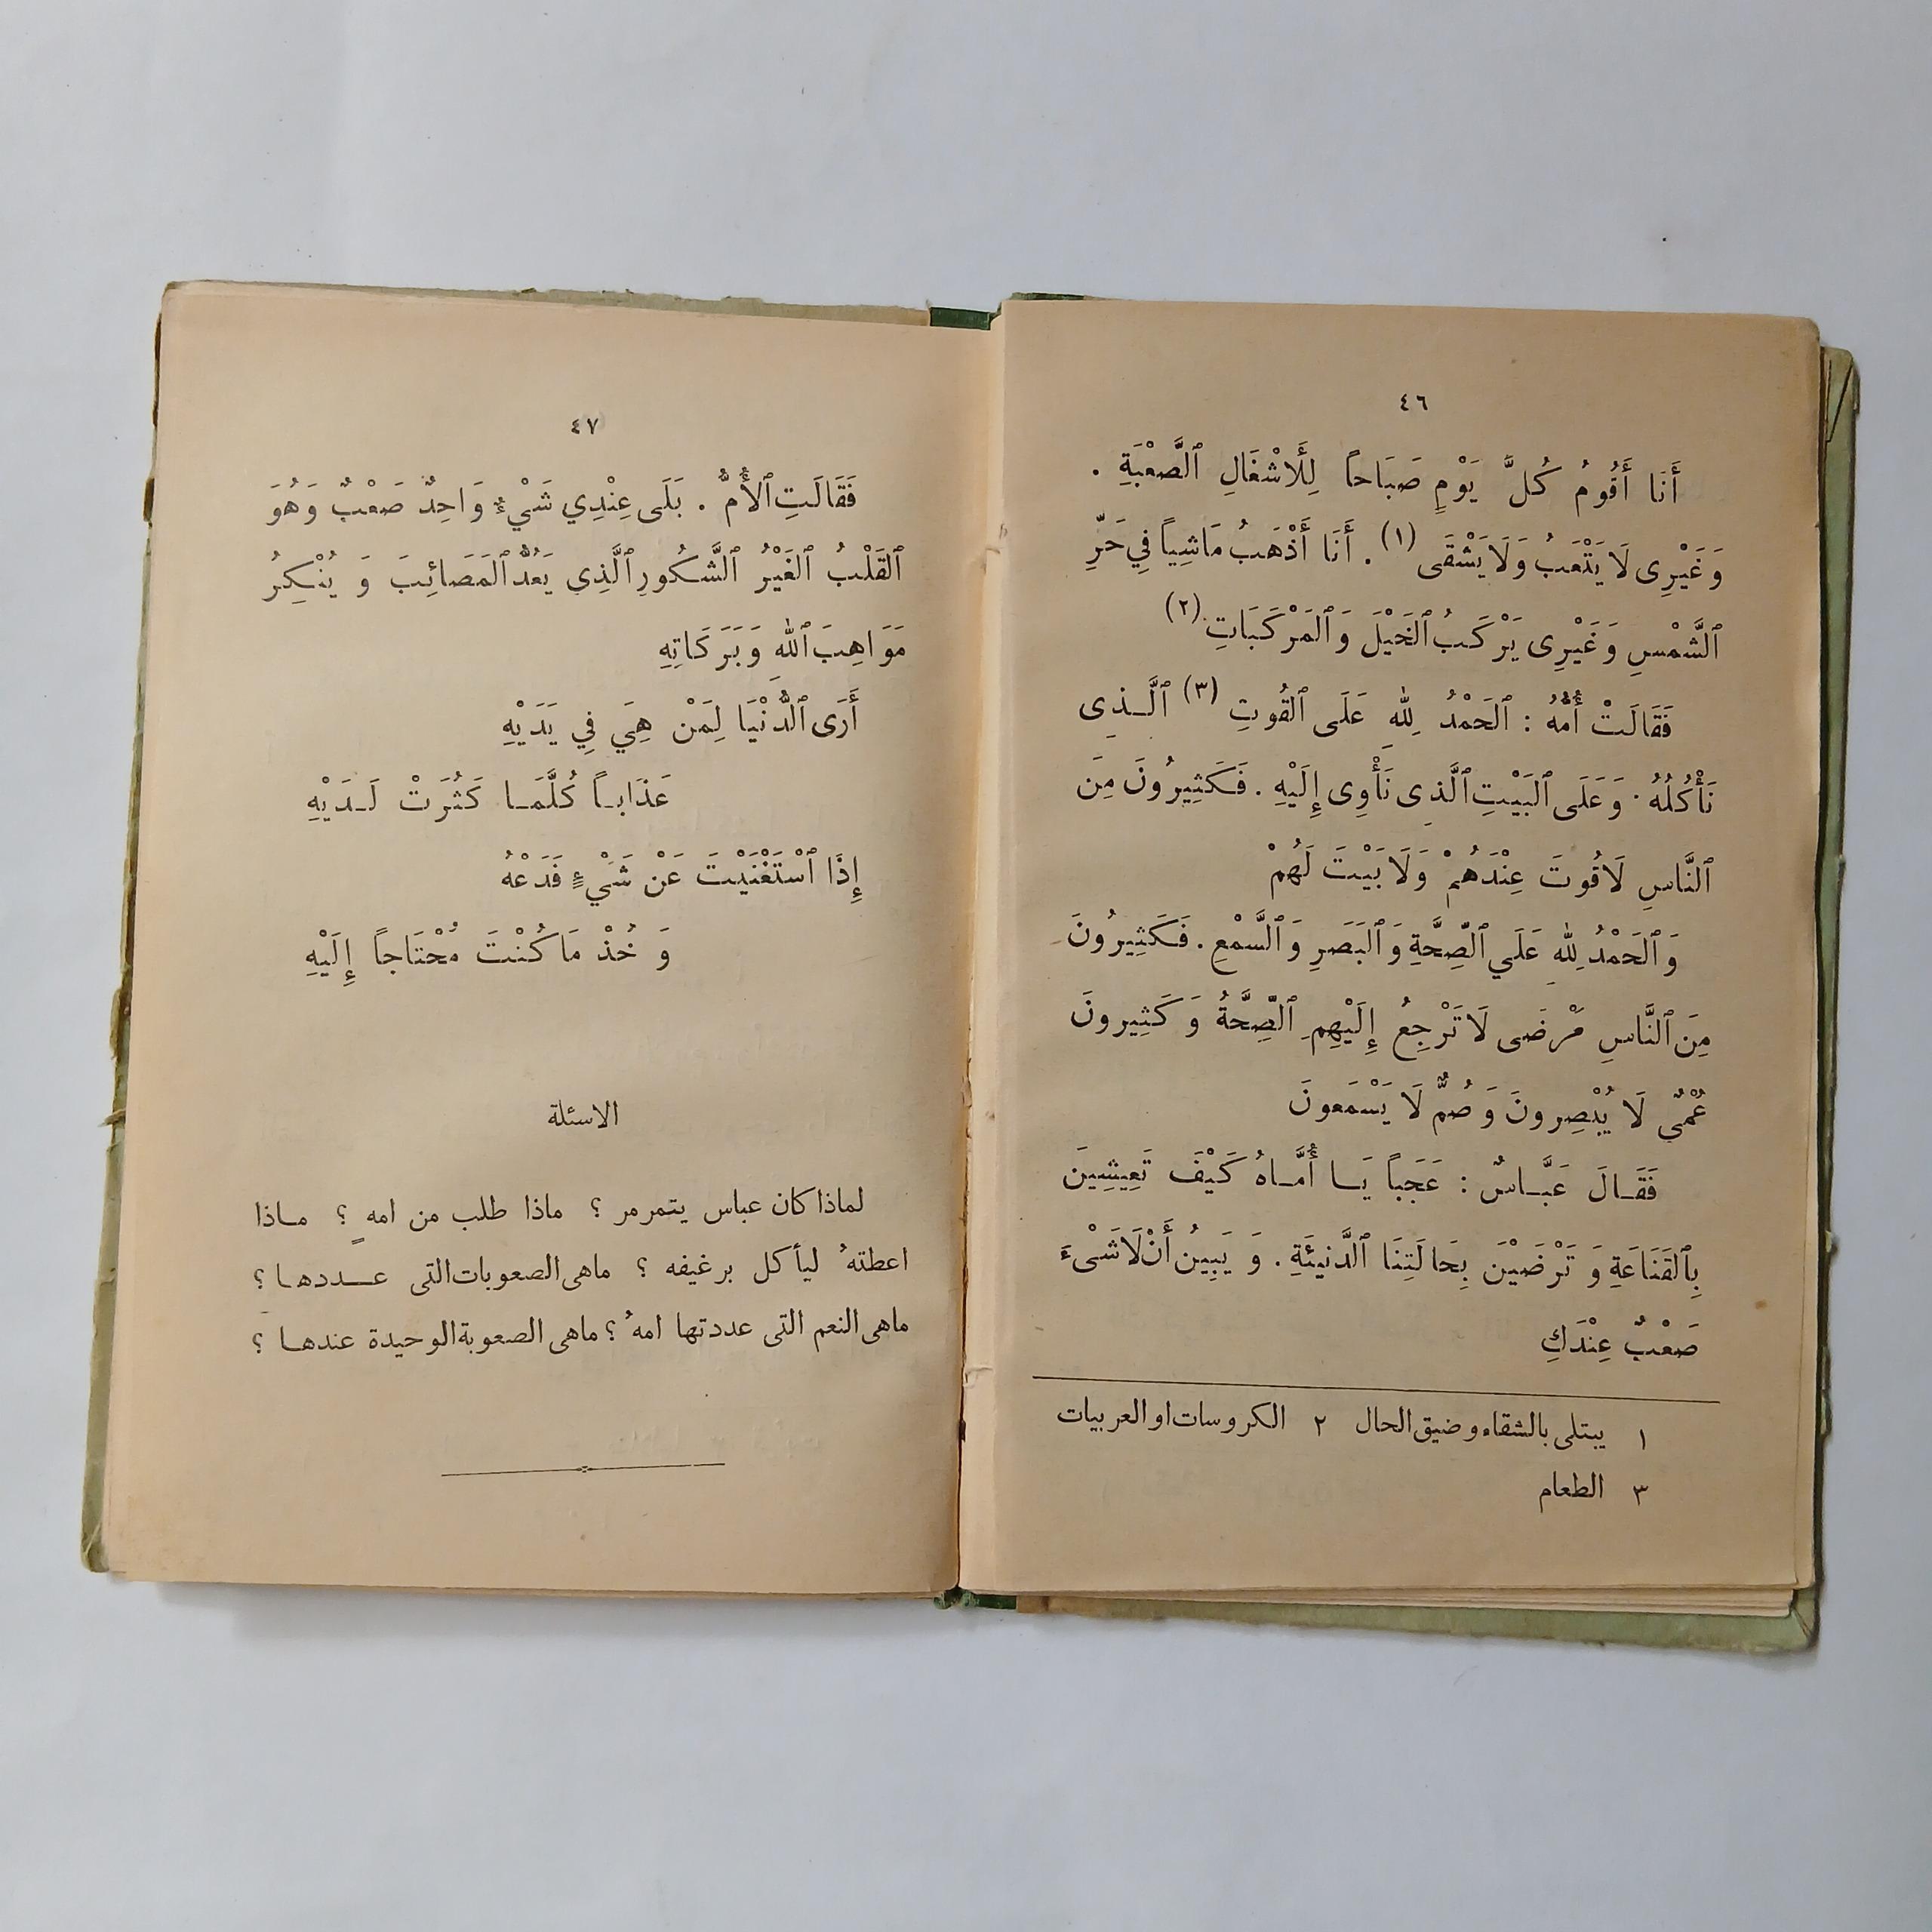 ٤٦
أَنَا أَقُومُ كُلَّ يَوْمٍ صَبَاحاً لِلْأَشْغَالِ ٱلصَّعْبَةِ .
وَغَيْرِى لَا يَتْعَبُ وَلَا يَشْقَى (١) . أَنَا أَذْهَبُ مَاشِياً فِي حَرِّ
ٱلشَّمْسِ وَغَيْرِى يَرْكَبُ ٱلخَيْلَ وَٱلمَرْكَبَاتِ (٢)
فَقَالَتْ أُمُّهُ : ٱلحَمْدُ لِلّٰهِ عَلَى ٱلقُوتِ (٣) ٱلَّـذِى
نَأْكُلُهُ . وَعَلَى ٱلبَيْتِ ٱلَّذِى نَأْوِى إِلَيْهِ . فَكَثِيرُونَ مِنَ
ٱلنَّاسِ لَاقُوتَ عِنْدَهُمْ وَلَا بَيْتَ لَهُمْ
وَٱلحَمْدُ لِلّٰهِ عَلَي ٱلصِّحَّةِ وَٱلبَصَرِ وَٱلسَّمْعِ . فَكَثِيرُونَ
مِنَ ٱلنَّاسِ مَرْضَى لَا تَرْجِعُ إِلَيْهِمِ ٱلصِّحَّةُ وَ كَثِيرونَ
عُمْيٌ لَا يُبْصِرونَ وَ صُمٌّ لَا يَسْمَعونَ
فَقَـالَ عَبَّـاسٌ : عَجَباً يَـا أُمَّـاهُ كَيْفَ تَعِيشِينَ
بِٱلقَنَاعَةِ وَ تَرْضَيْنَ بِحَالَتِنَا ٱلدَّنيئَةِ . وَ يَبِينُ أَنْ لَا شَىْءَ
صَعْبٌ عِنْدَكِ
١ يبتلى بالشقاء وضيق الحال ٢ الكروسات او العربيات
٣ الطعام
٤٧
فَقَالَتِ ٱلأُمُّ . بَلَى عِنْدِي شَيْءٌ وَاحِدٌ صَعْبٌ وَهُوَ
ٱلقَلْبُ ٱلغَيْرُ ٱلشَّكُورِ ٱلَّذِي يَعُدُّ ٱلمَصَائِبَ وَ يُنْكِرُ
مَوَاهِبَ ٱللهِ وَبَرَكَاتِهِ
أَرَى ٱلدُّنْيَا لِمَنْ هِيَ فِي يَدَيْهِ
عَذَابـاً كُلَّمَـا كَثُرَتْ لَـدَيْهِ
إِذَا ٱسْتَغْنَيْتَ عَنْ شَيْءٍ فَدَعْهُ
وَ خُذْ مَا كُنْتَ مُحْتَاجاً إِلَيْهِ
الاسئلة
لماذا كان عباس يتمرمر ؟ ماذا طلب من امهِ ؟ مـاذا
اعطتهُ ليأكل برغيفه ؟ ماهى الصعوبات التى عـــددهـا ؟
ماهى النعم التى عددتها امهُ ؟ ماهى الصعوبة الوحيدة عندهـا ؟